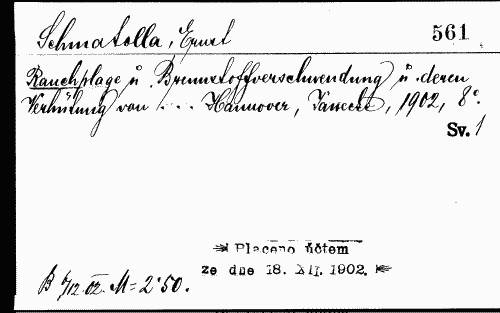 Schmatolla, Ernst
561
Rauchplage u. Brennstoffverschwendung u. deren
Verhütung von . . . Hannover, Jänecke, 1902, 8°.
Sv. 1
Placeno účtem
ze dne 18. XII. 1902.
B 6/12. 02. M = 2·50.